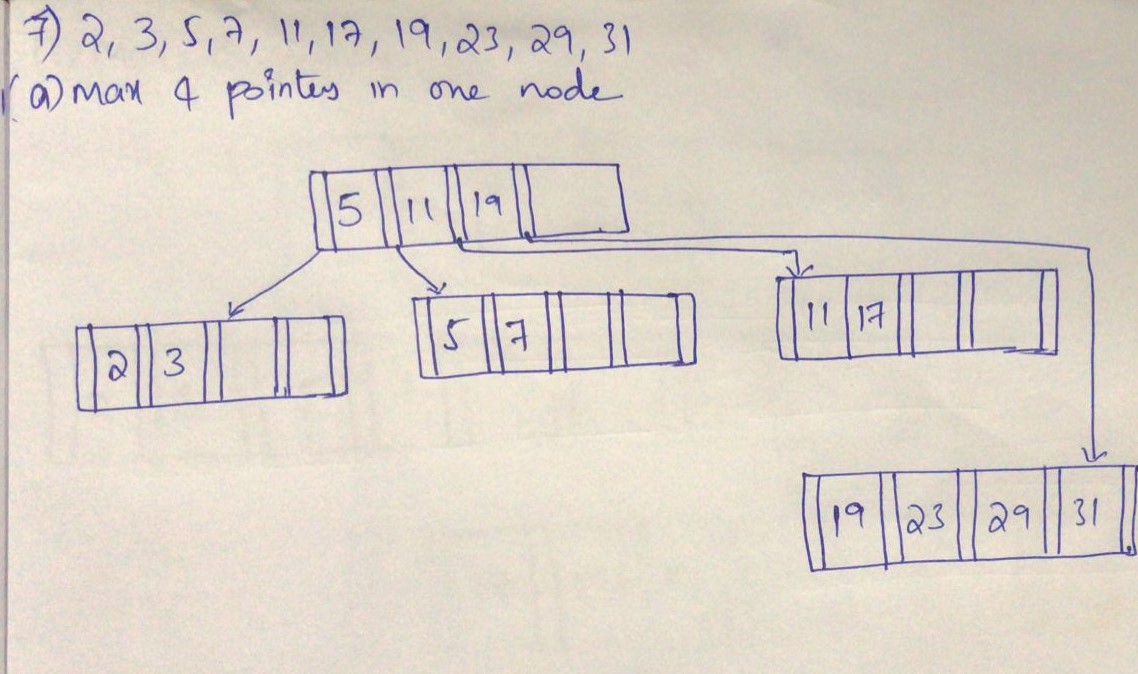 7) 2, 3, 5, 7, 11, 17, 19, 23, 29, 31
(a) Max 4 pointers in one node
5 11 19
2 3
5 7
11 17
19 23 29 31